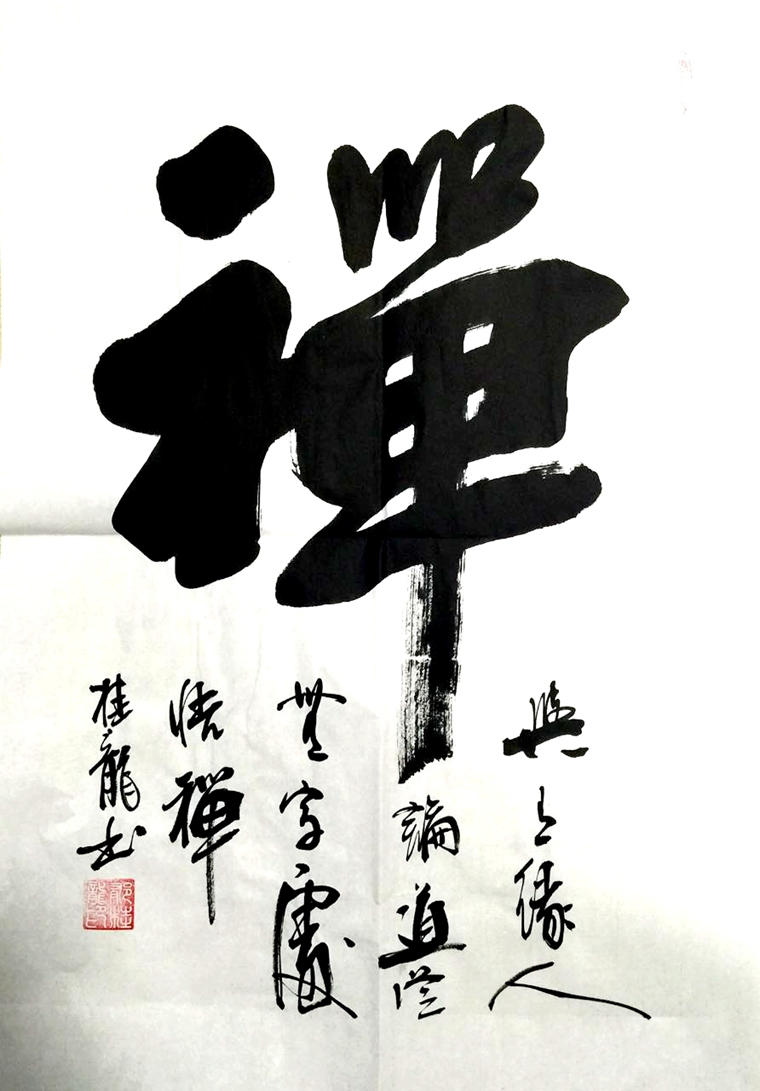 禪
與上緣人
論道從
無字處
悟禪
桂龍书